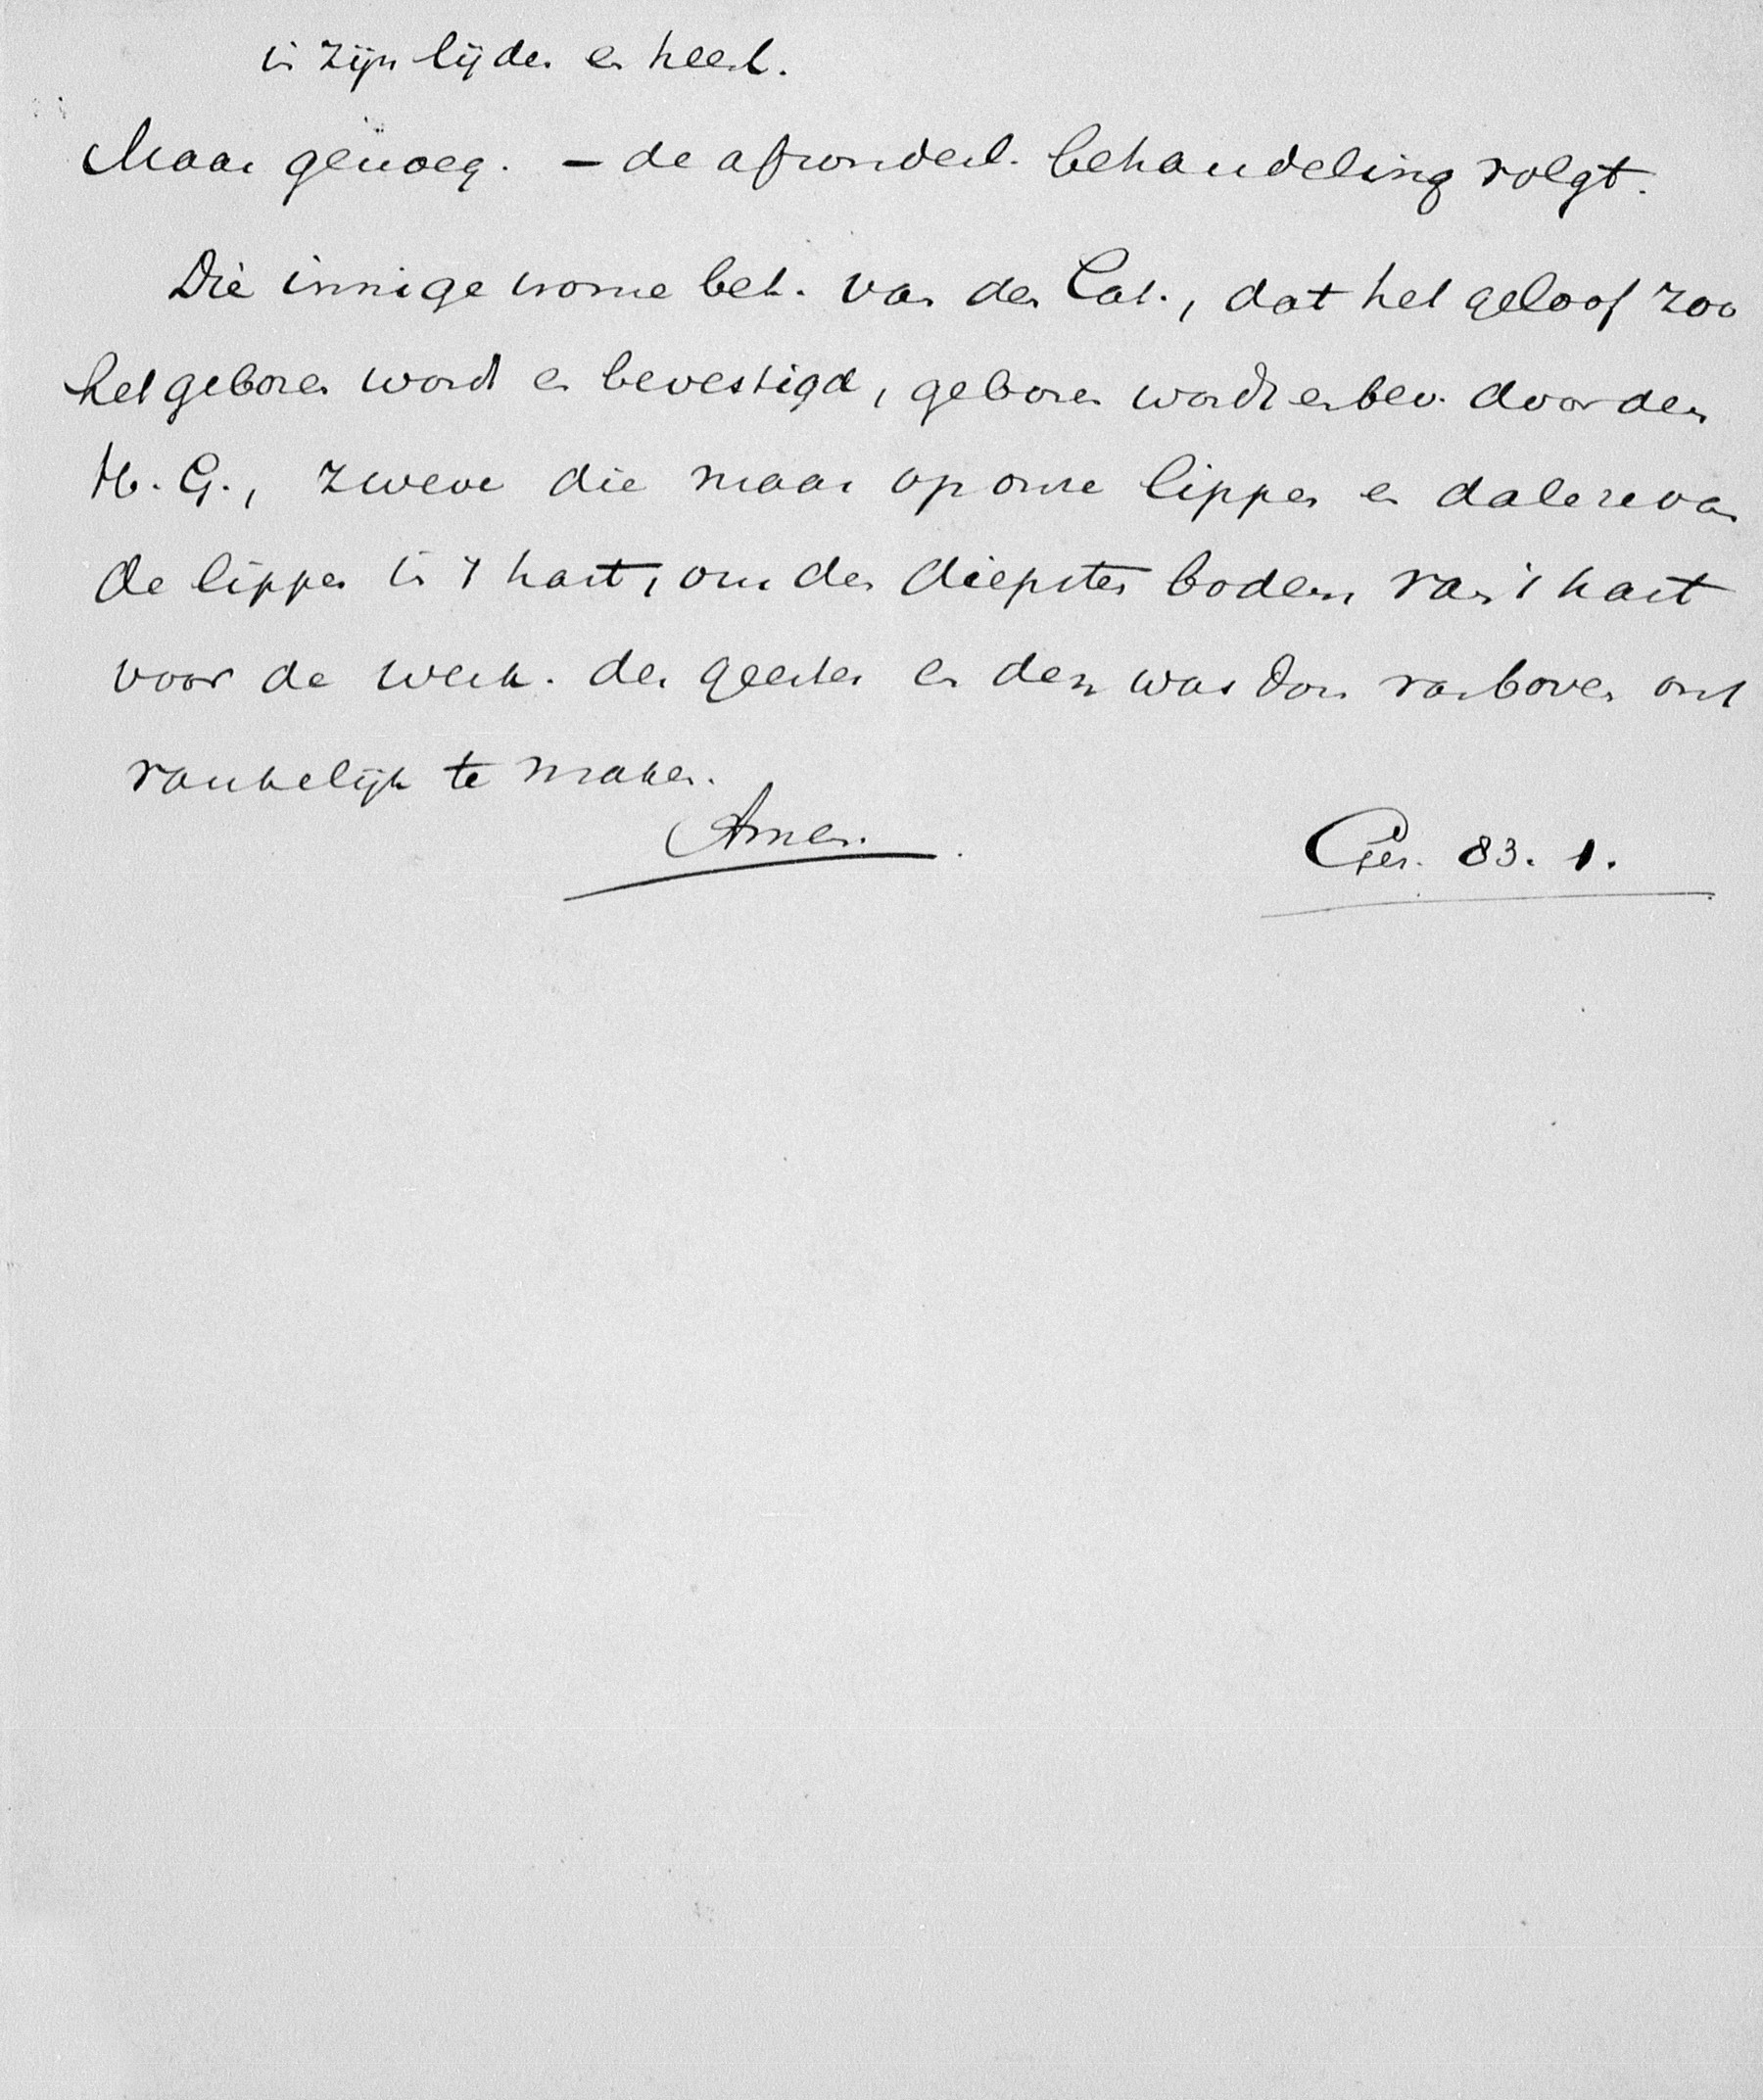 in zijn lijden en heerl.
Maar genoeg. – de afzonderl. behandeling volgt.
Die innige vrome bel. van den Cat., dat het geloof zoo
het geboren wordt en bevestigd, geboren wordt en bev. door den
H. G., zweve die maar op onze lippen en dale ze van
de lippen in 't hart, om den diepsten bodem van 't hart
voor de werk. des geestes en den wasdom van boven ont
vankelijk te maken.
Amen.
Gez. 83. 1.